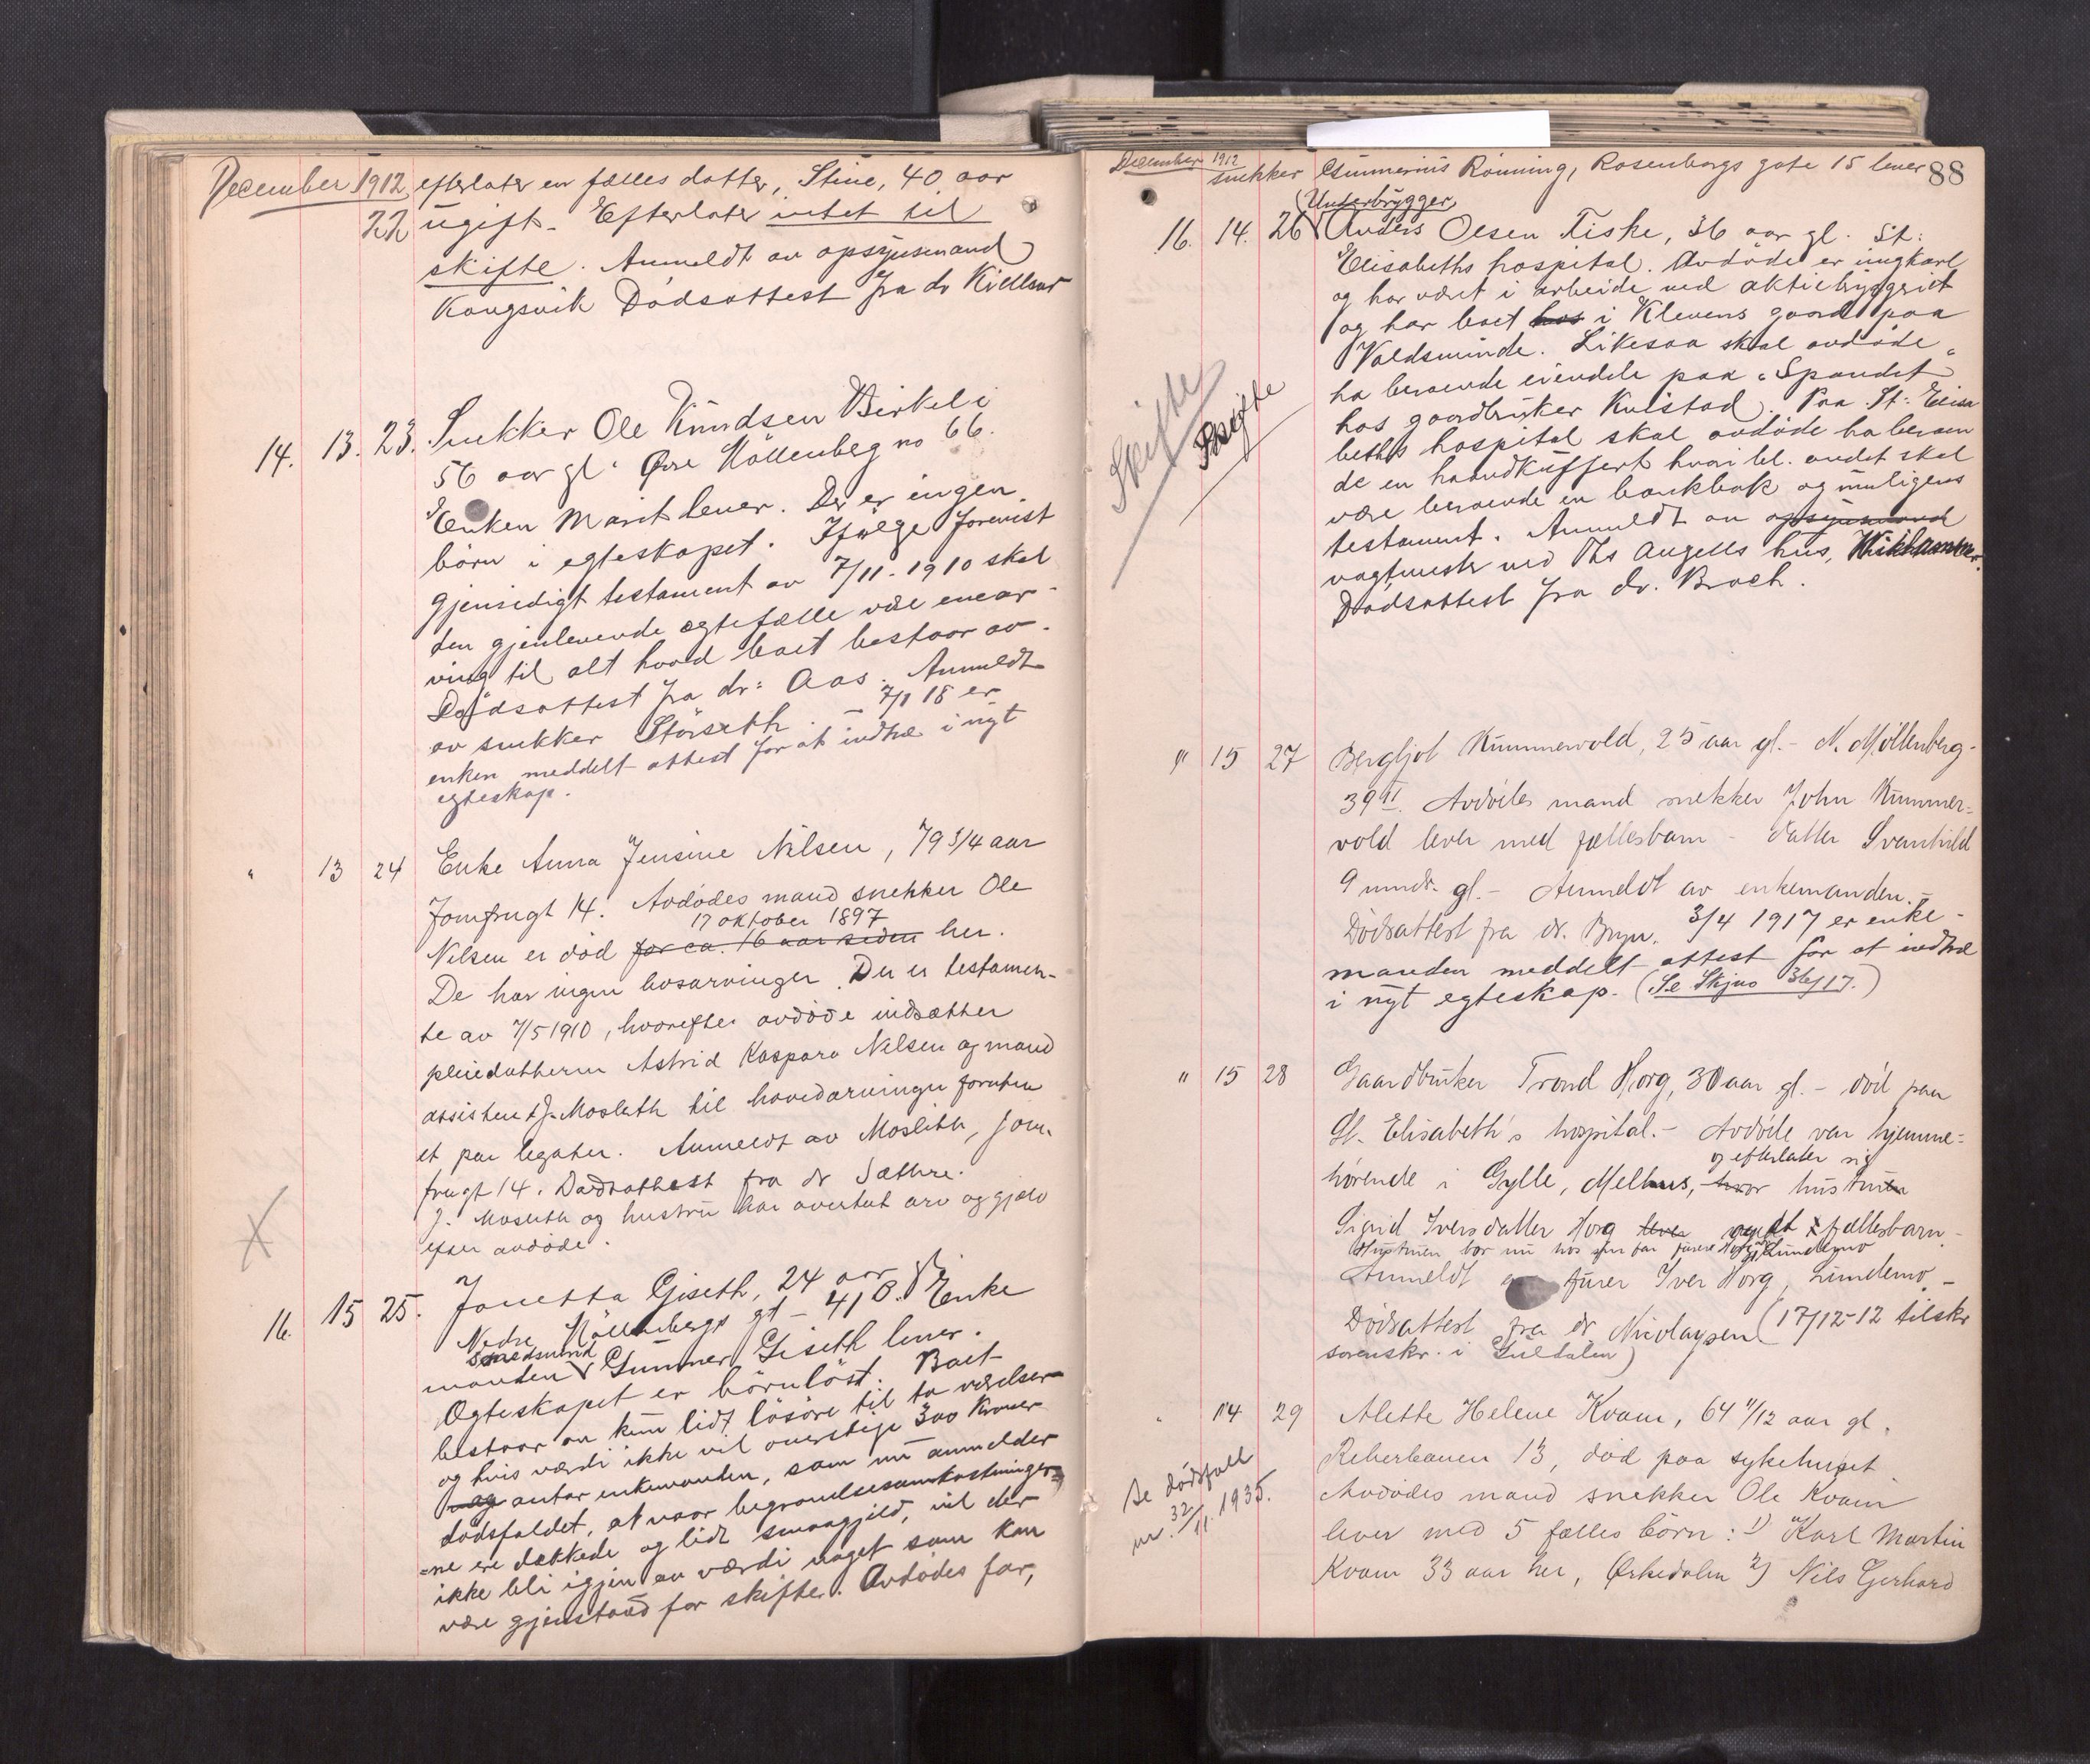 December 1912
22
efterlater en fælles datter, Stine, 40 aar
ugift. Efterlater intet til
skifte. Anmeldt av opsynsmand
Kongsvik Dødsattest fra dr Kiellmr
14. 13. 23. Snekker Ole Knudsen Birkeli
56 aar gl. Øvre Møllenberg no 66.
Enken Marit lever. Der er ingen
børn i egteskapet. Ifølge forevist
gjensidigt testament av 7/11-1910 skal
den gjenlevende egtefælle være enear-
ving til alt hvad boet bestaar av.
Dødsattest fra dr: Aas. Anmeldt
av snekker Störseth. – 7/1 18 er
enken meddelt attest for at indtræ i nyt
egteskap.
" 13 24 Enke Anna Jensine Nilsen, 79 3/4 aar
Jomfrugt 14. Avdødes mand snekker Ole
17 oktober 1897
Nilsen er død for ca. 16 aar siden her.
De har ingen livsarvinger. Der er testamen-
te av 7/5 1910, hvorefter avdøde indsætter
pleiedatteren Astrid Kaspara Nilsen og mand
assistent J. Mosleth til hovedarvinger foruten
et par legater. Anmeldt av Mosleth, Jom-
frugt 14. Dødsattest fra dr Sæthre.
J. Mosleth og hustru har overtat arv og gjæld
efter avdøde.
16. 15 25. Jonetta Giseth, 24 aar gl.
Nedre Møllenbergs gt – 41 B. Enke
smedsvend
manden Gunner Giseth lever.
Egteskapet er börnlöst. Boet
bestaar av kun lidt lösöre til to værelser
og hvis værdi ikke vil overstige 300 Kroner
og antar enkemanden, som nu anmelder
dødsfaldet, at naar begravelsesomkostninger-
=ne er dækkede og lidt smaagjeld, vil der
ikke bli igjen av værdi noget som kan
være gjenstand for skifte. Avdødes far,
December 1912
88
snekker Gunnerius Rönning, Rosenborgs gate 15 lever
(Underbrygger)
16. 14. 26 Anders Olsen Fiske, 36 aar gl. St:
Elisabeths hospital. Avdøde er ungkarl
og har været i arbeide ved aktiebryggeriet
og har boet hos i Klevens gaard paa
Voldsminde. Likesaa skal avdøde
ha beroende eiendele paa "Spandet"
hos gaardbruker Kulstad. Paa St: Elisa
beths hospital skal avdøde ha beroen
de en haandkuffert hvori bl. andet skal
være beroende en bankbok og muligens
testament. Anmeldt av opsynsmand
vagtmester ved Ths Angells hus, Wikhammer.
Dødsattest fra dr. Broch.
Skifte
Skifte
" 15 27 Bergljot Kummervold, 25 aar gl. – N. Möllenberg-
39 II. Avdødes mand snekker John Kummer=
vold lever med fællesbarn – datter Svanhild
9 mndr. gl. – Anmeldt av enkemanden. –
Dödsattest fra dr. Bryn. 3/4 1917 er enke-
manden meddelt attest for at indtræ
i nyt egteskap. (Se Skjno 36/17.)
" 15 28 Gaardbruker Trond Horg, 30 aar gl. – död paa
St. Elisabeth's hospital. – Avdöde var hjemme=
og efterlater sig
hørende i Gylle, Melhus, hvor hustruen
Sigrid Iversdatter Horg lever fællesbarn. –
Hustruen bor nu hos sin far furer Horg Lundemo
Anmeldt av furer Iver Horg, Lundemo –
Dödsattest fra dr Nicolaysen (17/12-12 tilskr
sorenskr. i Guldalen)
" 14 29 Alette Helene Kvam, 64 11/12 aar gl.
Reberbanen 13, død paa sykehuset.
Avdødes mand snekker Ole Kvam
lever med 5 fælles börn: 1) Karl Martin
Kvam 33 aar her, Ørkedalen 2) Nils Gerhard
Se dödsfall
nr. 32/11. 1935.